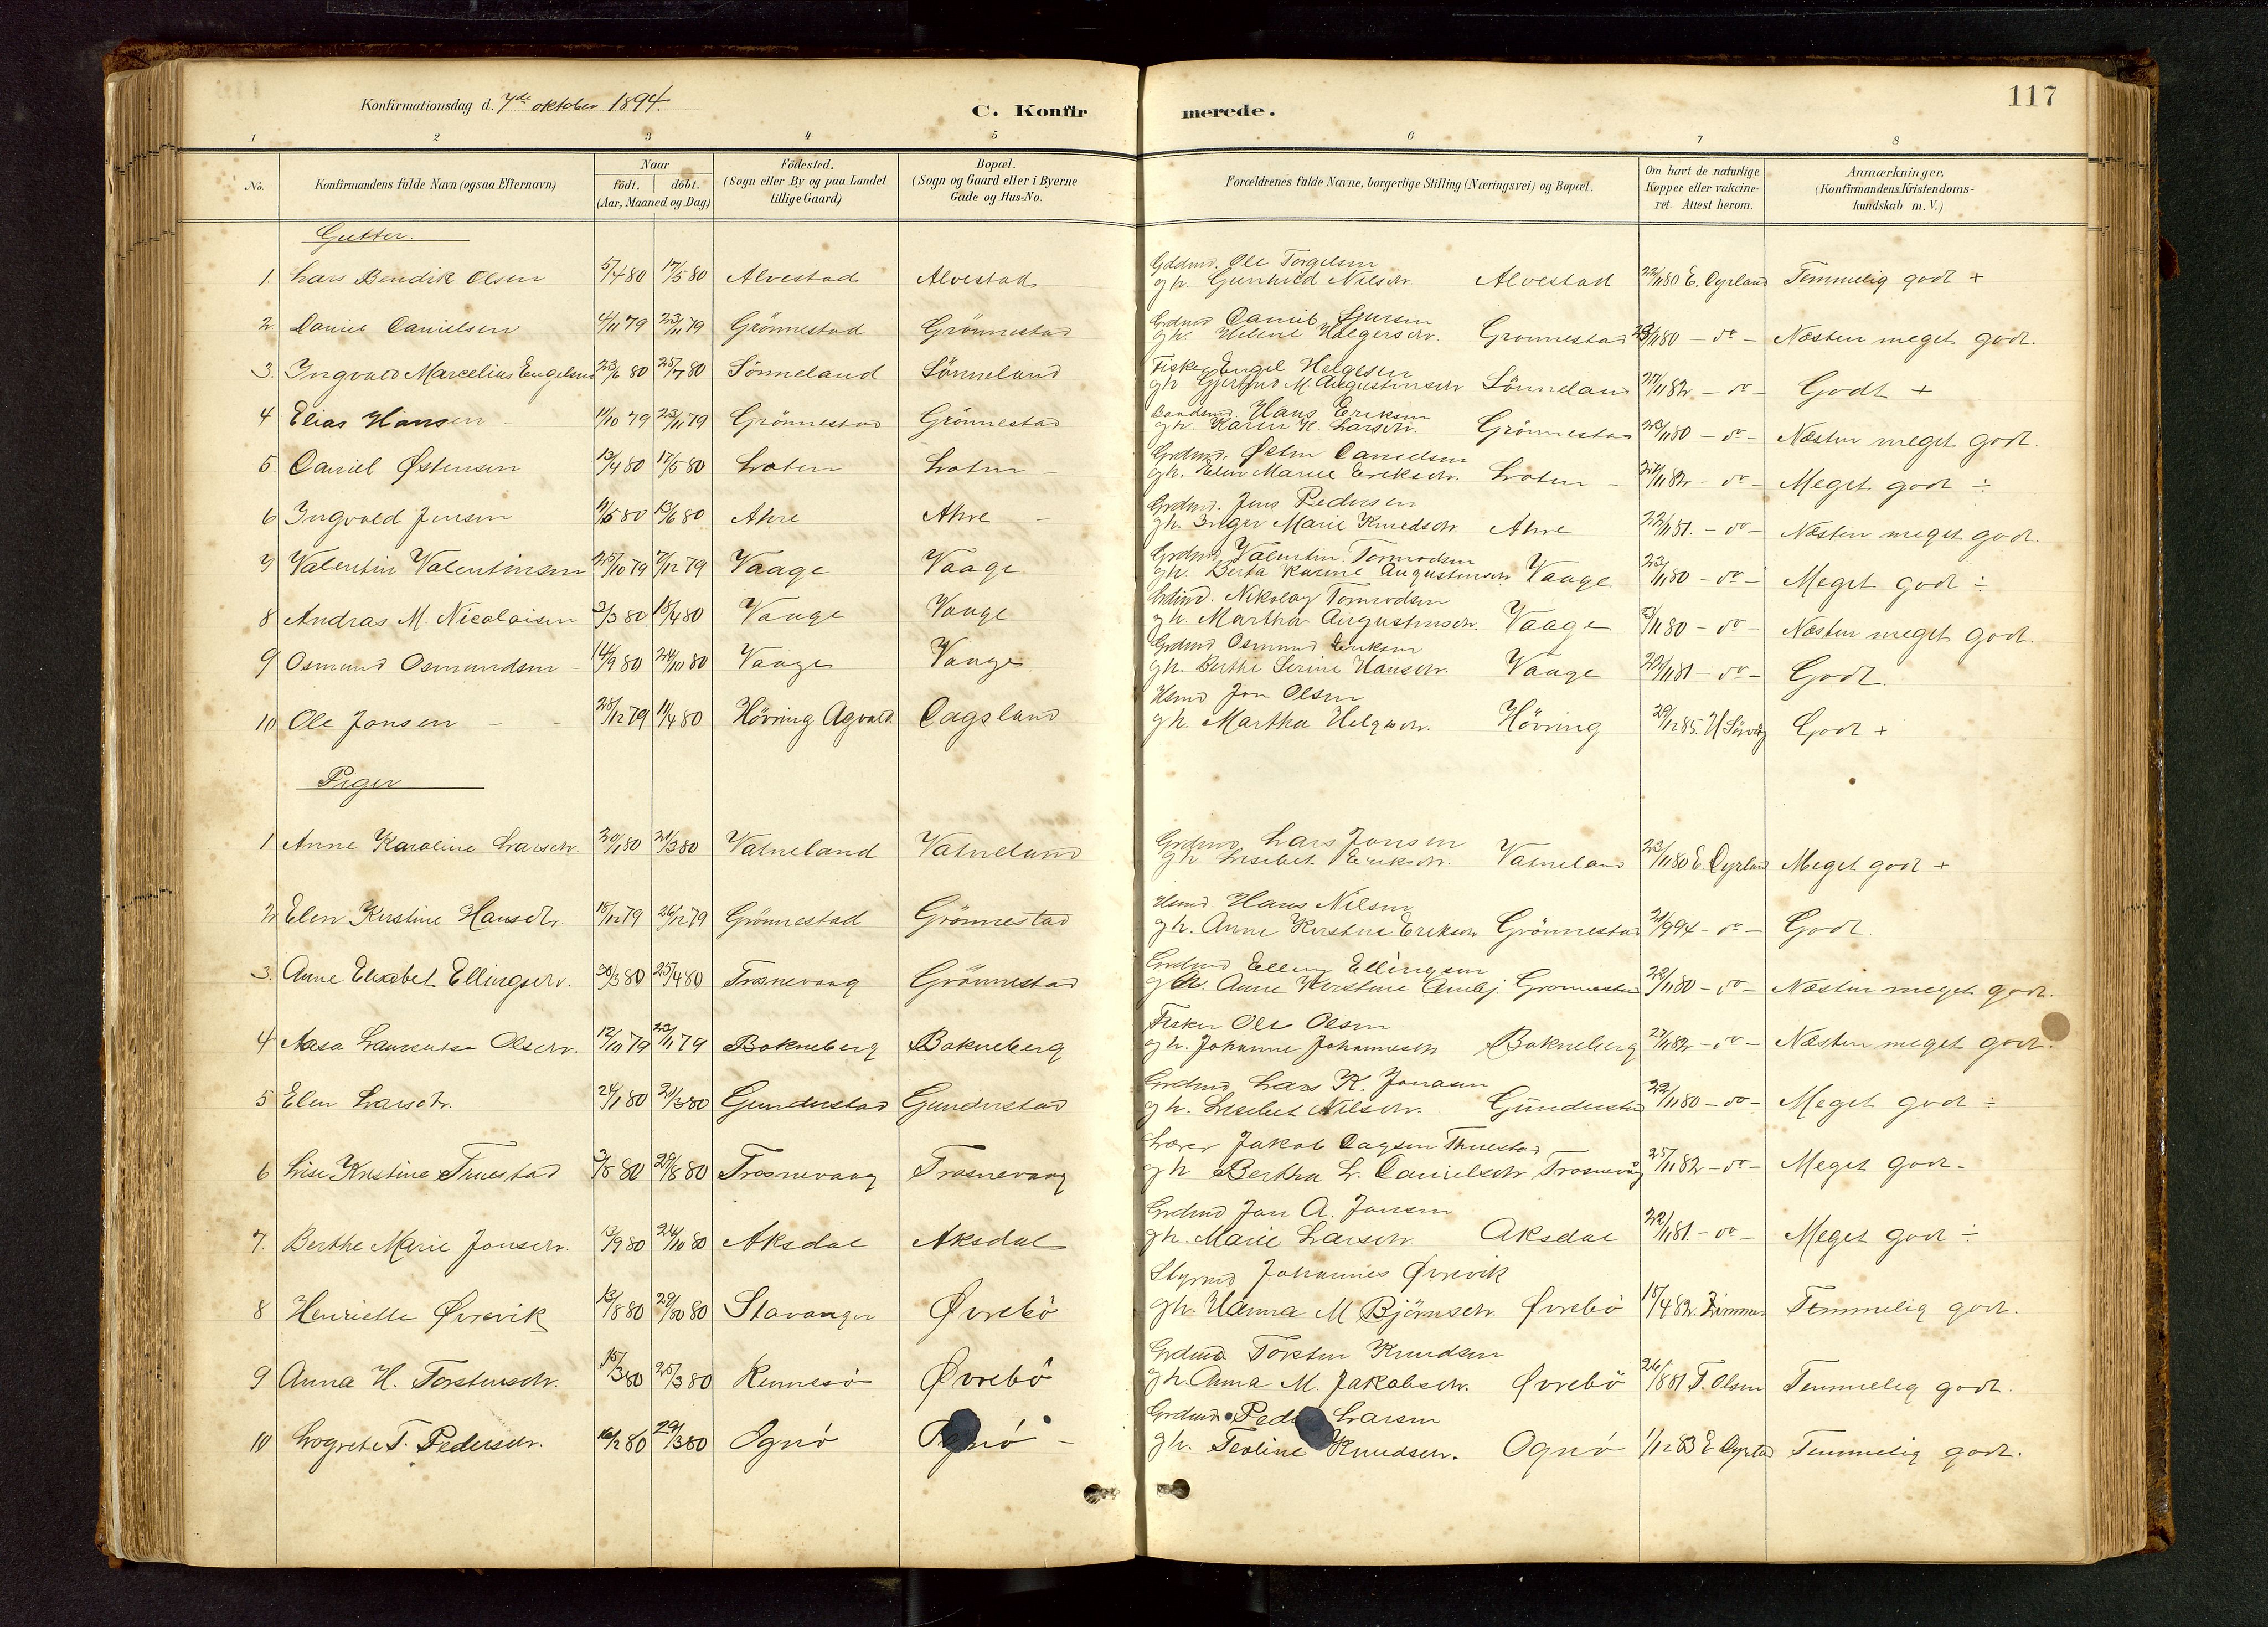 117
Konfirmationsdag d. 7de oktober 1894.
C. Konfirmerede.
1 2 3 4 5 6 7 8
No.
Konfirmandens fulde Navn (ogsaa Efternavn)
Naar
födt. döbt.
(Aar, Maaned og Dag)
Födested.
(Sogn eller By og paa Landet
tillige Gaard)
Bopæl.
(Sogn og Gaard eller i Byerne
Gade og Hus-No.
Forældrenes fulde Navne, borgerlige Stilling (Næringsvei) og Bopæl.
Om havt de naturlige
Kopper eller vakcine-
ret. Attest herom.
Anmærkninger.
(Konfirmandens Kristendoms-
kundskab m. V.)
Gutter.
Gdmd. Ole Torgelsen
1. Lars Bendik Olsen 5/4 80 17/5 80 Alvestad Alvestad gh. Gunhild Nilsdr. Alvestad 22/11 80 E. Dyrland Temmelig godt +
Grdmd Daniel Sjursen
2. Daniel Danielsen 4/11 79 23/11 79 Grönnestad Grönnestad gh. Helene Helgersdr. Gronnestad 23/11 80 - do - Næsten meget godt.
Fisker Engel Helgesen
3. Ingvald Marcelius Engelsen 23/6 80 25/7 80 Sönneland Sönneland gh Gjertrud M Augustinsdr Sönneland 27/11 82 - do - Godt +
Baadsmd. Hans Eriksen
4 Elias Hansen 11/10 79 23/11 79 Grönnestad Grönnestad gh. Karen K. Larsdr. Grönnestad 23/11 80 - do - Næsten meget godt.
Grdmd. Østen Danielsen
5. Daniel Østensen 13/4 80 17/5 80 Loten Loten - gh. Elen Marie Eriksdr. Loten - 27/11 82 - do - Meget godt ÷
Grdmd. Jens Pedersen
6 Ingvald Jensen 11/5 80 13/6 80 Ahre Ahre - gh. Inger Marie Knudsdr. Ahre 22/11 81. - do - Næsten meget godt.
Grdmd Valentin Tormodsen
7 Valentin Valentinsen 25/10 79 7/12 79 Vaage Vaage gh. Berta Karine Augustinsdr. Vaage 23/11 80 - do - Meget godt ÷
Grdmd. Nikolay Tormodsen
8 Andras M. Nicolaisen 3/3 80 18/4 80 Vaage Vaage gh. Martha Augustinsdr. Vaage 3/11 80 - do - Næsten meget godt.
Grdmd Osmund Eriksen
9 Osmund Osmundsen - 14/9 80 24/10 80 Vaage Vaage gh. Berthe Serine Hansdr. Vaage 22/11 81 - do - Godt.
Hsmd Jon Olsen
10 Ole Jonsen - - 28/12 79 11/4 80 Hövring Agvald. Dagsland gh. Martha Helgesdr. Hövring 29/12 85. Godt +
Piger
Grdmd Lars Jonsen
1 Anne Karoline Larsdr. 20/1 80 21/3 80 Vatneland Vatneland gh Lisebet Eriksdr. Vatneland 23/11 80 E. Dyrland Meget godt +
Hsmd. Hans Nilsen
2 Elen Kirstine Hansdr. 18/12 79 26/12 79 Grönnestad Grönnestad gh. Anne Kirstine Eriksdr Grönnestad 21/9 94 - do - Godt.
Grdmd Elling Ellingsen
3. Anne Elisabet Ellingsdr. 30/3 80 25/4 80 Trosnevaag Grönnestad gh. Anne Kirstine Gronnestad 22/11 80 - do - Næsten meget godt.
Fisker Ole Olsen
4 Aasa Laurentse Olsdr. 12/10 79 23/11 79 Bokneberg Bokneberg gh. Johanne Johannesdr Bokneberg 27/11 82 - do - Næsten meget godt.
Grdmd Lars K. Jonasen
5 Elen Larsdtr. 24/1 80 21/3 80 Gunderstad Gunderstad gh. Lisebet Nilsdr. Gunderstad 22/11 80 - do - Meget godt ÷
Lærer Jakob Dagsen Thuestad
6 Lise Kristine Thuestad 3/8 80 29/8 80 Trosnevaag Trosnevaag gh Bertha L. Danielsdr Trosnevåg 25/11 82 - do - Meget godt -
Grdmd Jon A. Jonsen
7. Berthe Marie Jonsdr. 13/9 80 24/10 80 Aksdal Aksdal gh. Marie Larsdr Aksdal 22/11 81. - do - Meget godt ÷
Styrmd Johannes Øvrevik
8 Henriette Øvrevik 13/8 80 29/8 80 Stavanger Øvrebö gh. Hanna M Björnsdr. Øvrebö 18/4 82. Zimmer Temmelig godt.
Grdmd Torsten Knudsen
9 Anna H. Torstensdr. 15/3 80 25/3 80 Rennesö Øvrebö gh. Anna M. Jakobsdr. Øvrebö 26/8 81 T. Olsen Temmelig godt.
Grdmd Peder Larsen
10 T. Pedersdr. 16/2 80 29/3 80 Ognö Ognö - gh. Teoline Knudsdr. Ognö 1/12 83 E Dyrla Temmelig godt.